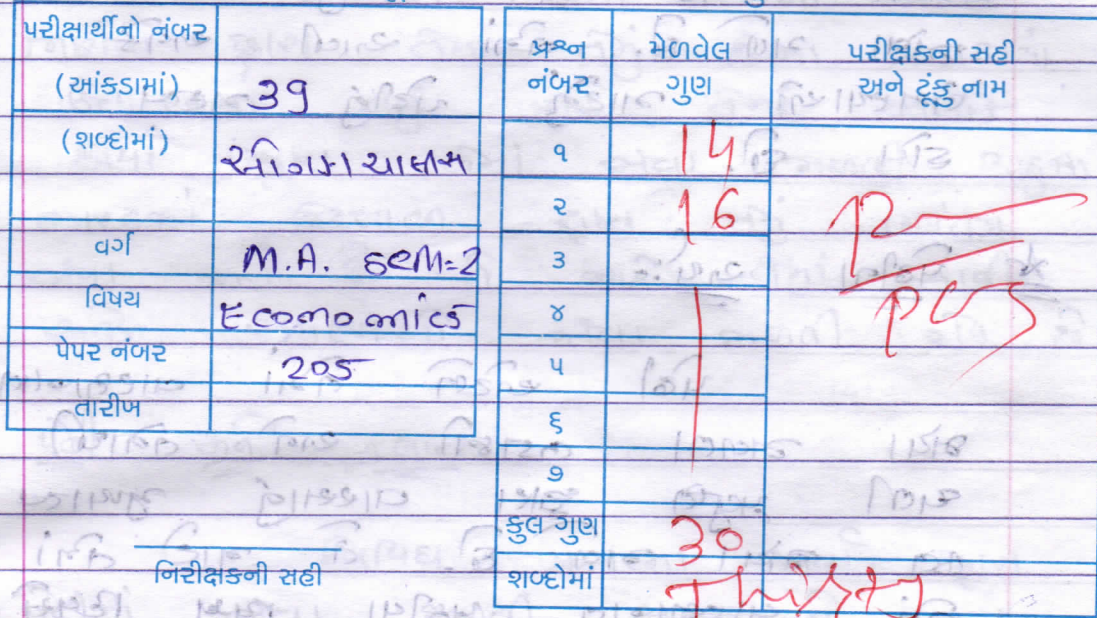 પરીક્ષાર્થીનો નંબર
(આંકડામાં) 39
(શબ્દોમાં) ઓગણાચાલીસ
વર્ગ M.A. sem=2
વિષય Economics
પેપર નંબર 205
તારીખ
નિરીક્ષકની સહી
પ્રશ્ન નંબર મેળવેલ ગુણ પરીક્ષકની સહી અને ટૂંકુ નામ
૧ 14
૨ 16
૩
૪
૫
૬
૭
કુલ ગુણ 30
શબ્દોમાં Thirty